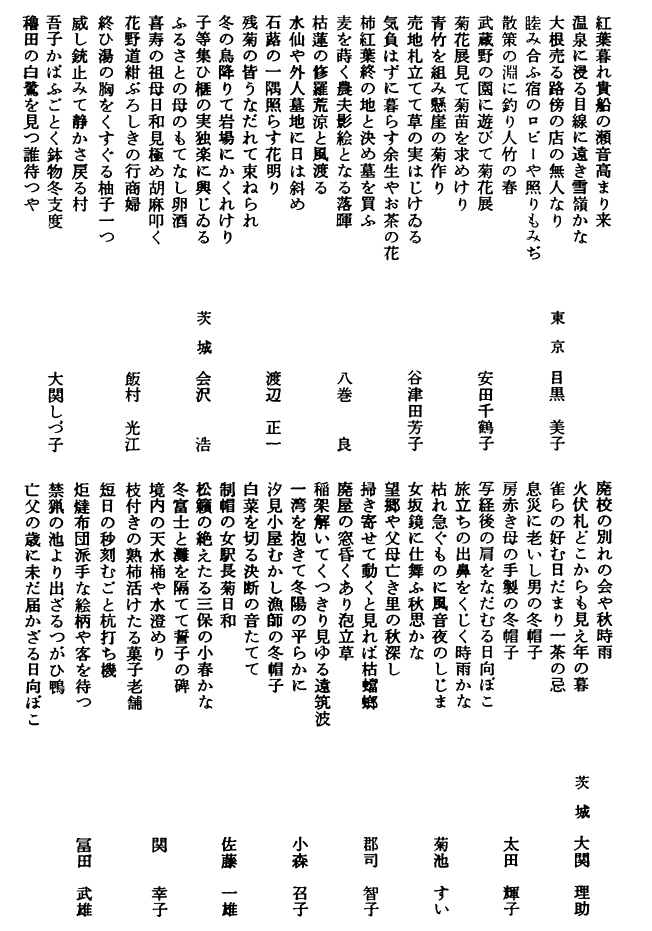 紅葉暮れ貴船の瀬音高まり来
温泉に浸る目線に遠き雪嶺かな
大根売る路傍の店の無人なり
東京 目黒 美子
睦み合ふ宿のロビーや照りもみぢ
散策の淵に釣り人竹の春
武蔵野の園に遊びて菊花展
安田千鶴子
菊花展見て菊苗を求めけり
青竹を組み懸崖の菊作り
売地札立てて草の実はじけゐる
谷津田芳子
気負はずに暮らす余生やお茶の花
柿紅葉終の地と決め墓を買ふ
麦を蒔く農夫影絵となる落暉
八巻 良
枯蓮の修羅荒涼と風渡る
水仙や外人墓地に日は斜め
石蕗の一隅照らす花明り
渡辺 正一
残菊の皆うなだれて束ねられ
冬の鳥降りて岩場にかくれけり
子等集ひ榧の実独楽に興じゐる
茨城 会沢 浩
ふるさとの母のもてなし卵酒
喜寿の祖母日和見極め胡麻叩く
花野道紺ぶろしきの行商婦
飯村 光江
終ひ湯の胸をくすぐる柚子一つ
威し銃止みて静かさ戻る村
吾子かばふごとく鉢物冬支度
大関しづ子
穭田の白鷺を見つ誰待つや
廃校の別れの会や秋時雨
火伏札どこからも見え年の暮
茨城 大関 理助
雀らの好む日だまり一茶の忌
息災に老いし男の冬帽子
房赤き母の手製の冬帽子
太田 輝子
写経後の肩をなだむる日向ぼこ
旅立ちの出鼻をくじく時雨かな
枯れ急ぐものに風音夜のしじま
菊池 すい
女坂鏡に仕舞ふ秋思かな
望郷や父母亡き里の秋深し
掃き寄せて動くと見れば枯蟷螂
郡司 智子
廃屋の窓昏くあり泡立草
稲架解いてくつきり見ゆる遠筑波
一湾を抱きて冬陽の平らかに
小森 召子
汐見小屋むかし漁師の冬帽子
白菜を切る決断の音たてて
制帽の女駅長菊日和
佐藤 一雄
松籟の絶えたる三保の小春かな
冬富士と灘を隔てて誓子の碑
境内の天水桶や水澄めり
関 幸子
枝付きの熟柿活けたる菓子老舗
短日の秒刻むごと杭打ち機
炬燵布団派手な絵柄や客を待つ
冨田 武雄
禁猟の池より出ざるつがひ鴨
亡父の歳に未だ届かざる日向ぼこ